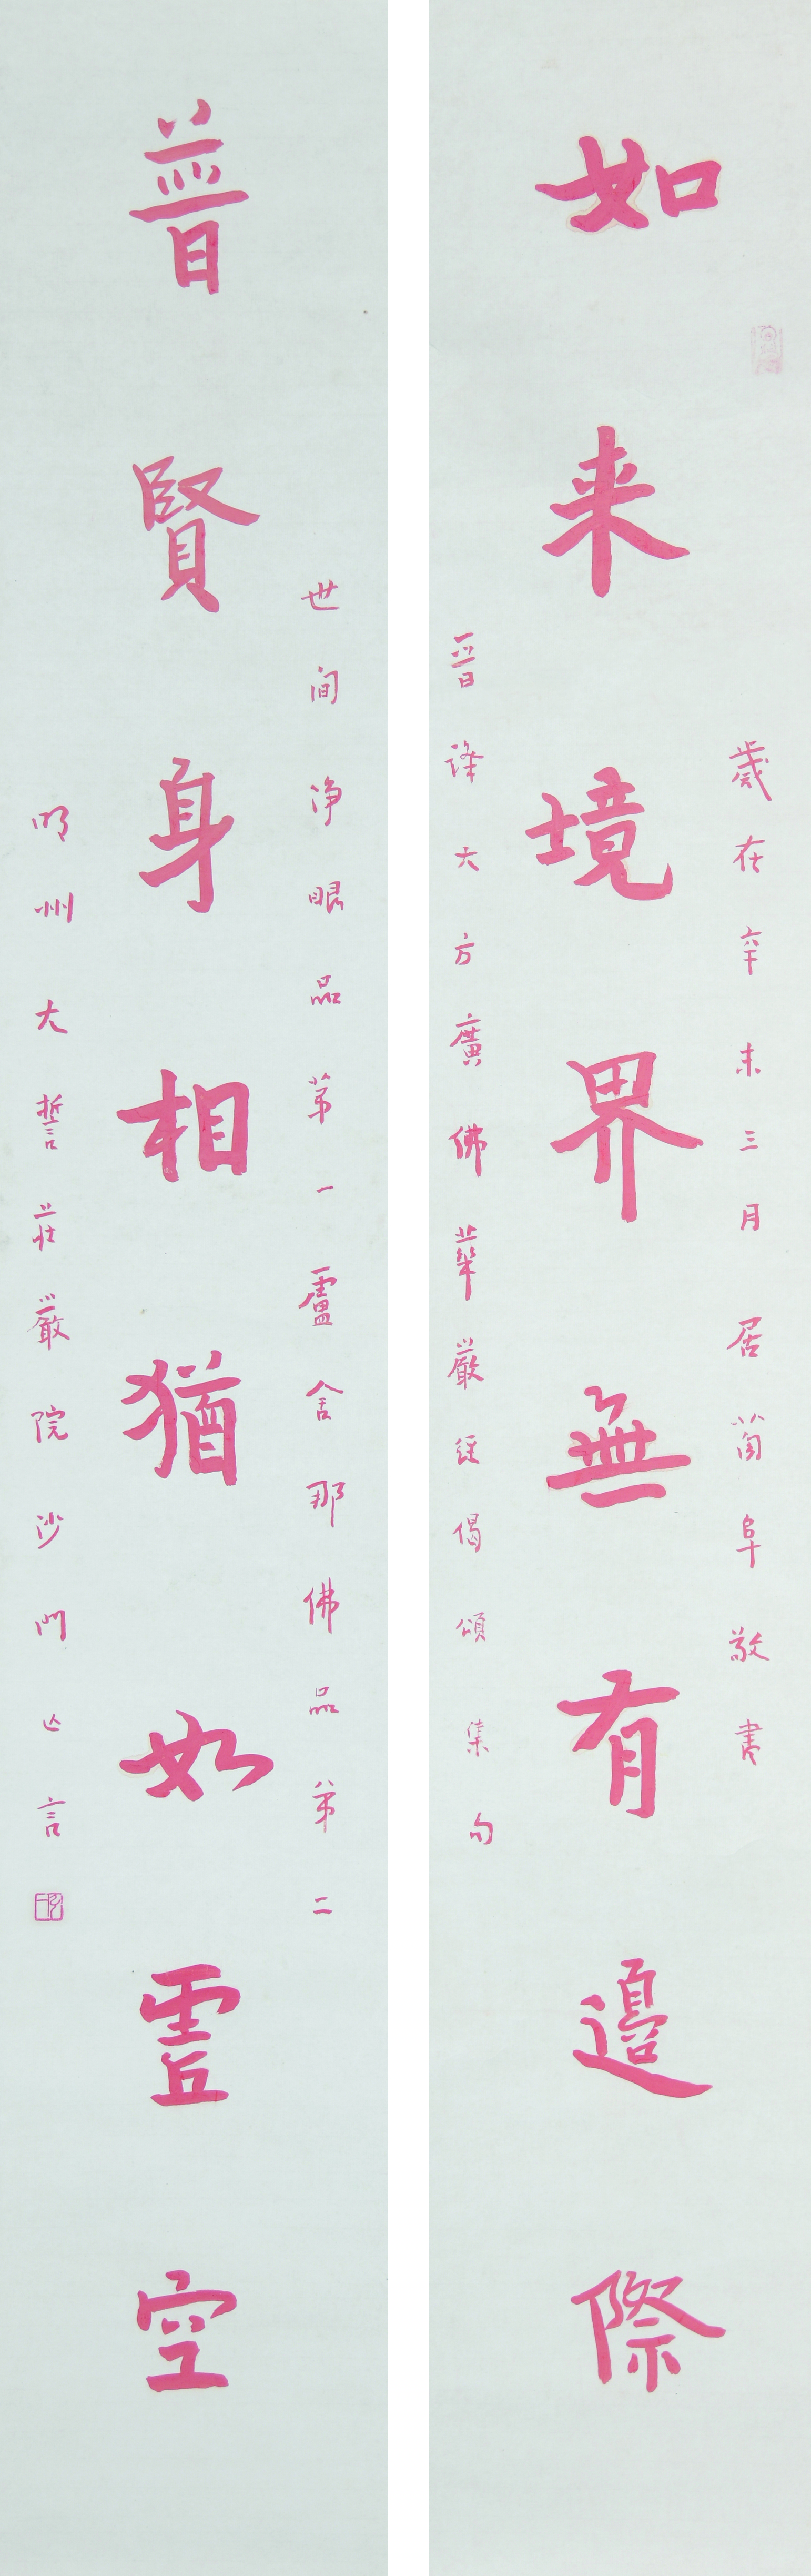 如来境界無有邊際
歲在辛未三月居蕳阜敬書
晉譯大方廣佛華嚴経偈頌集句
普賢身相猶如虛空
世间淨眼品第一盧舍那佛品第二
明州大誓莊嚴院沙門亡言